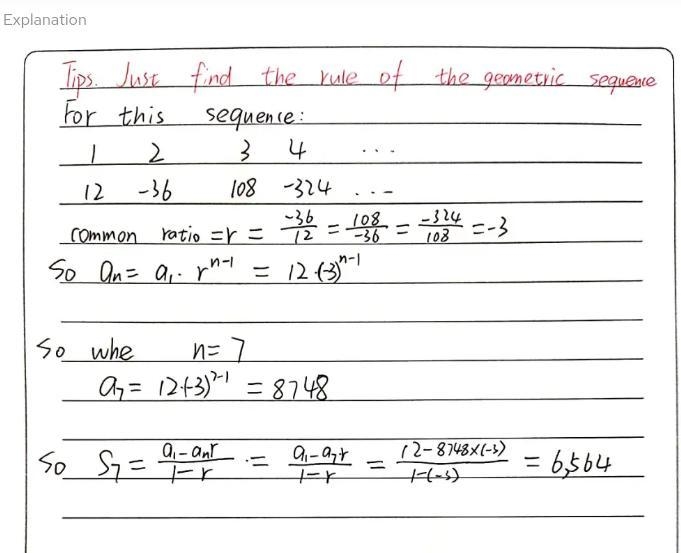 Explanation
Tips. Just find the rule of the geometric sequence
For this sequence:
1 2 3 4 ...
12 -36 108 -324 ...
common ratio = r = -36/12 = 108/-36 = -324/108 = -3
So aₙ = a₁· rⁿ⁻¹ = 12·(-3)ⁿ⁻¹
So whe n = 7
a₇ = 12·(-3)⁷⁻¹ = 8748
So S₇ = a₁-aₙr/1-r = a₁-a₇r/1-r = 12-8748×(-3)/1-(-3) = 6,564